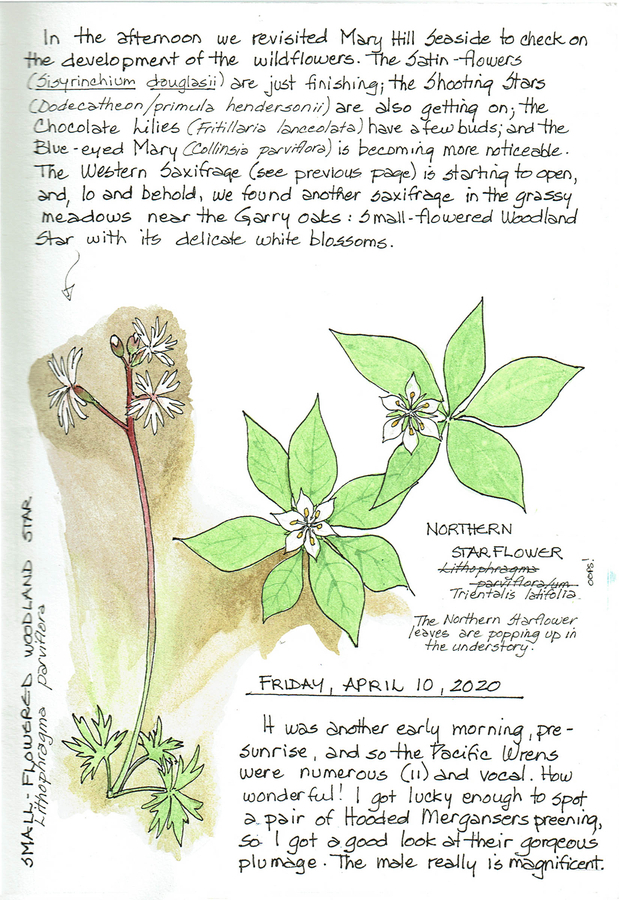 In the afternoon we revisited Mary Hill Seaside to check on
the development of the wildflowers. The Satin-flowers
(Sisyrinchium douglasii) are just finishing; the Shooting Stars
(Dodecatheon/primula hendersonii) are also getting on; the
Chocolate Lilies (Fritillaria lanceolata) have a few buds; and the
Blue-eyed Mary (Collinsia parviflora) is becoming more noticeable.
The Western Saxifrage (see previous page) is starting to open,
and, lo and behold, we found another saxifrage in the grassy
meadows near the Garry oaks: Small-flowered Woodland
Star with its delicate white blossoms.
SMALL-FLOWERED WOODLAND STAR
Lithophragma parviflora
NORTHERN
STARFLOWER
Lithophragma
parviflora/um
oops!
Trientalis latifolia.
The Northern Starflower
leaves are popping up in
the understory.
FRIDAY, APRIL 10, 2020
It was another early morning, pre-
sunrise, and so the Pacific Wrens
were numerous (11) and vocal. How
wonderful! I got lucky enough to spot
a pair of Hooded Mergansers preening,
so I got a good look at their gorgeous
plumage. The male really is magnificent.